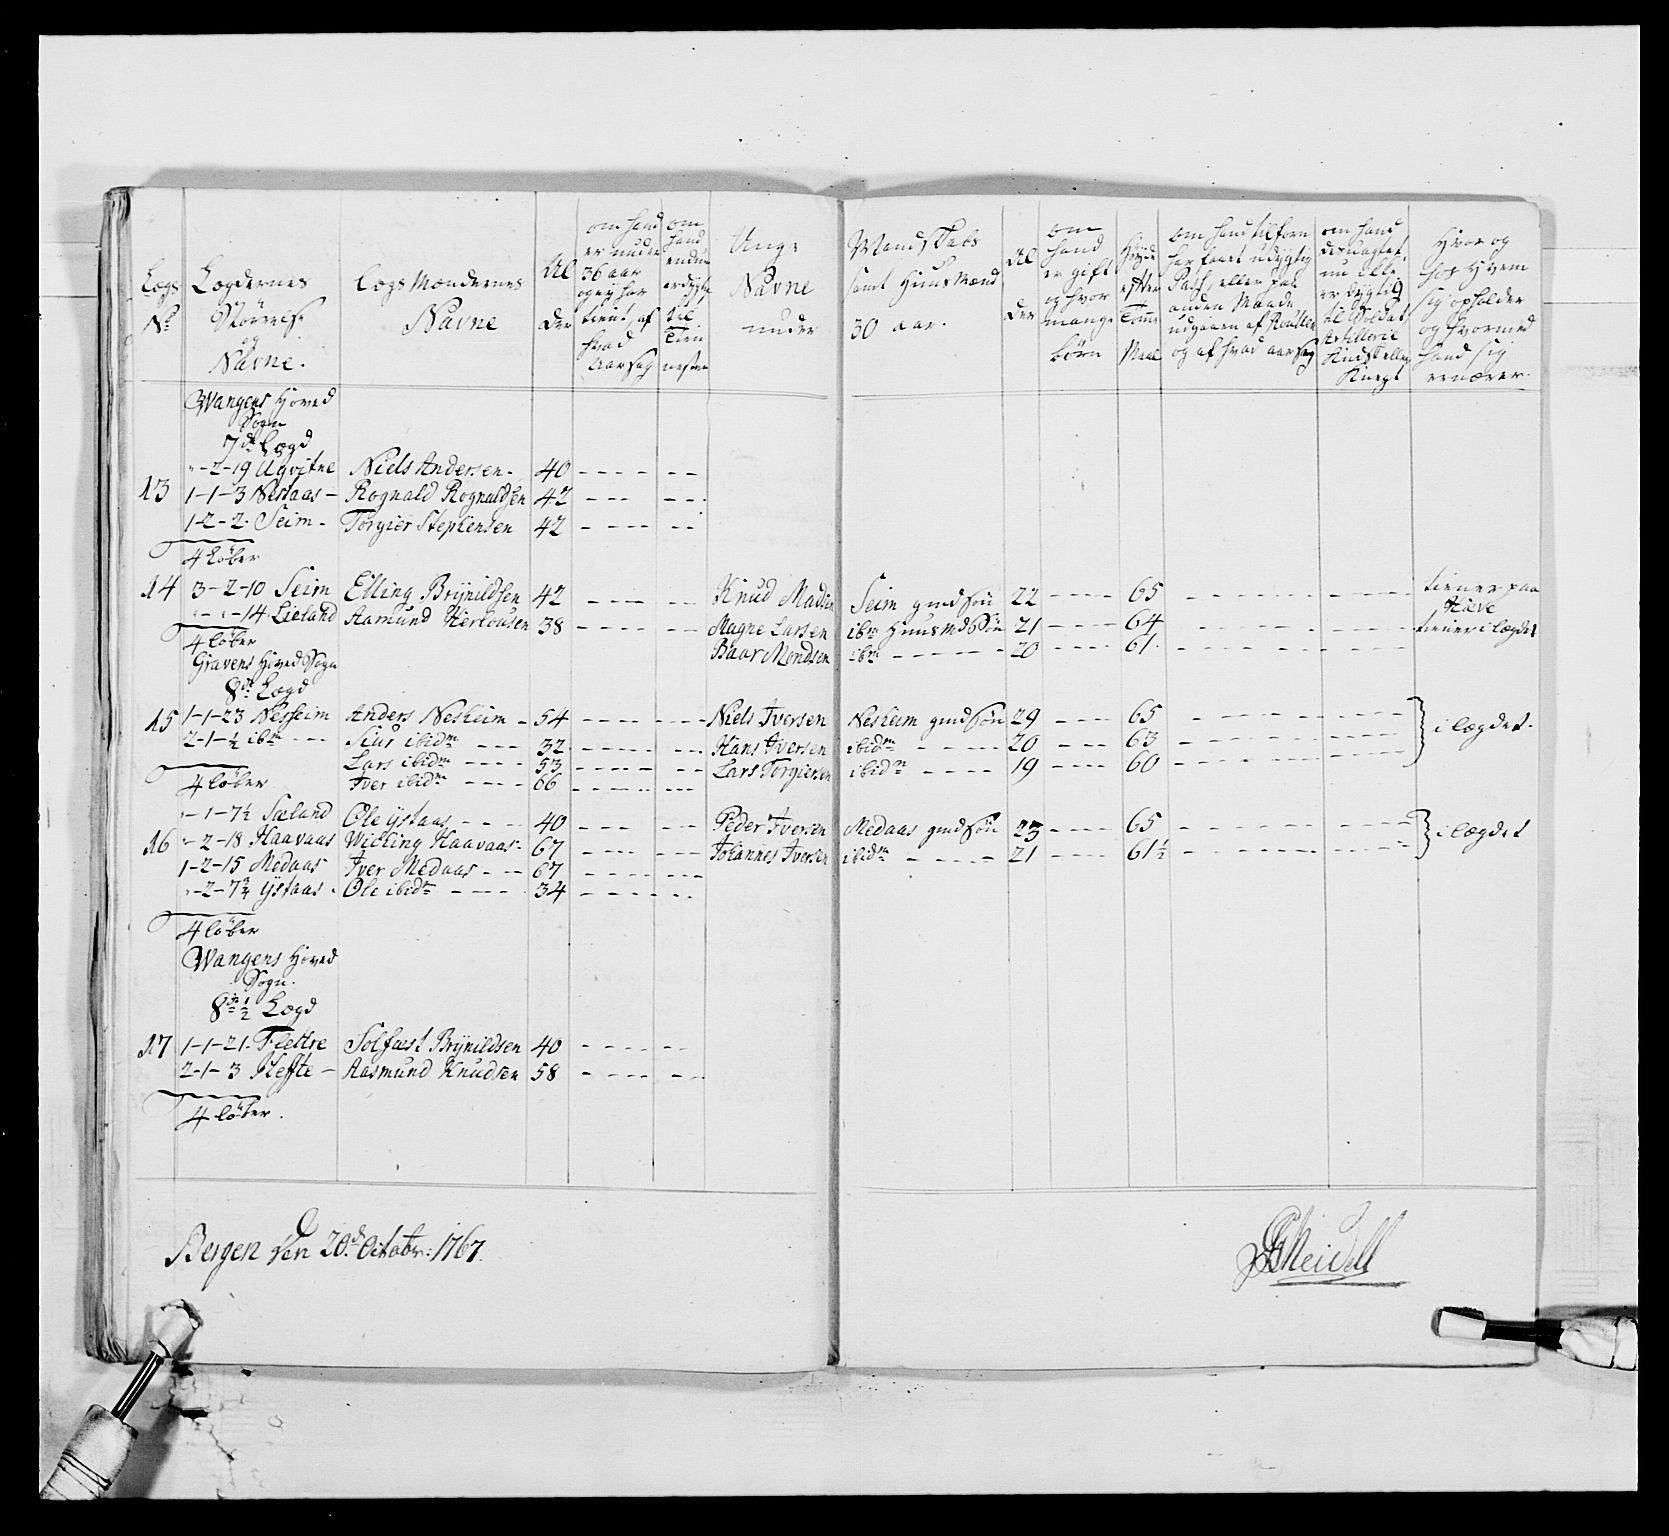 Legs No
Legdernes Størrelse og Navne.
Legs Mændernes Navne
Alder
om hand er under 36 aar og ey har tient, af hvad Aarsag
om hand endnu er dygtig til Tienesten
Unge Mandskabs Navne samt Huusmænd under 30 aar.
Alder
om hand er gift og hvor mange børn
Høyde efter Tomme Maal
om hand tilforn har faaet udygtig Pass, eller paa anden Maade udgaaen af Roullen og af hvad aarsag
om hand desuagtet, nu ikke er dygtig til Soldat, Artillerie Kudsk eller Knegt
Hvor og hos hvem sig opholder og hvormed hand sig ernærer.
Wangens Hoved
Sogn
7de Lægd
"-2-19 Ugvitne Niels Andersen. 40
13 1-1-3 Nestaas - Rognald Rognaldsen 42
1-2-2. Seim - Torgier Stephensen 42
4 Løber
14 3-2-10 Seim Elling Brÿnildsen 42 Knud Madsen Seim gmdsøn 22 65 tiener paa Hæve
"-"-14 Lieland Aamund Herlousen 38 Magne Larsen ibm Huusmdsøn 21 64 tiener i lægdet
4 løber Baar Mondsen ibm 20 61.
Gravens Hoved Sogn
8de Lægd
15 1-1-23 Nesheim Anders Nesheim - 54 Niels Iversen Nesheim gmdsøn 29 65 i lægdet.
2-1-½ ibm Siur ibidm 32 Hans Iversen ibidm 20 63
Lars ibidm 53 Lars Torgiersen ibidm 19 60
4 løber Iver ibidm 66
"-1-7½ Sæland Ole ÿstaas 40 Peder Iversen Medaas gmdsøn 23 65 i lægdet
16 "-2-18 Haavaas Wiching Haavaas 67 Johannes Iversen ibidm 21 61½
1-2-15 Medaas Iver Medaas 67
"-2-7¾ ÿstaas Ole ibidm 34
4 løber
Wangens Hoved
Sogn.
8de ½ Lægd
17 1-1-21. Flettre Solfæst Brÿnildsen 40
2-1-3 Hefte - Aasmund Knudsen 58
4 løber.
Bergen den 20d Octobr: 1767.